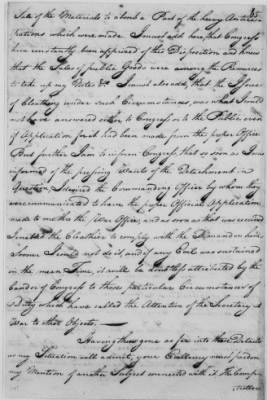 Sale of the Materials to absorb a Part of the heavy Anticipations
which were made. I must add here, that Congress
have constantly been apprised of this Disposition and knew
that the Sales of public Goods were among the Resources
to take up my Notes &c. I must also add, that the Issue
of Cloathing under such Circumstances, was what I could
not have answered either to Congress or to the Public even
if Application for it had been made from the proper Officer
But further I am to inform Congress, that so soon as I was
informed of the pressing Wants of the Detachment in
Question, I desired the Commanding Officer by whom they
were communicated to have the proper Official Application
made to me thro the War Office, and as soon as that was received
I enabled the Clothier to comply with the Demand on him.
Sooner I could not do it, and if any Evil was sustained
in the mean Time, it will be doubtless attributed by the
Candor of Congress to those particular Circumstances of
Duty which have called the Attention of the Secretary at
War to other Objects.
Having thus gone as far into the Details
as my Situation will admit, your Excellency will pardon
my Mention of another Subject connected with it. The Comp